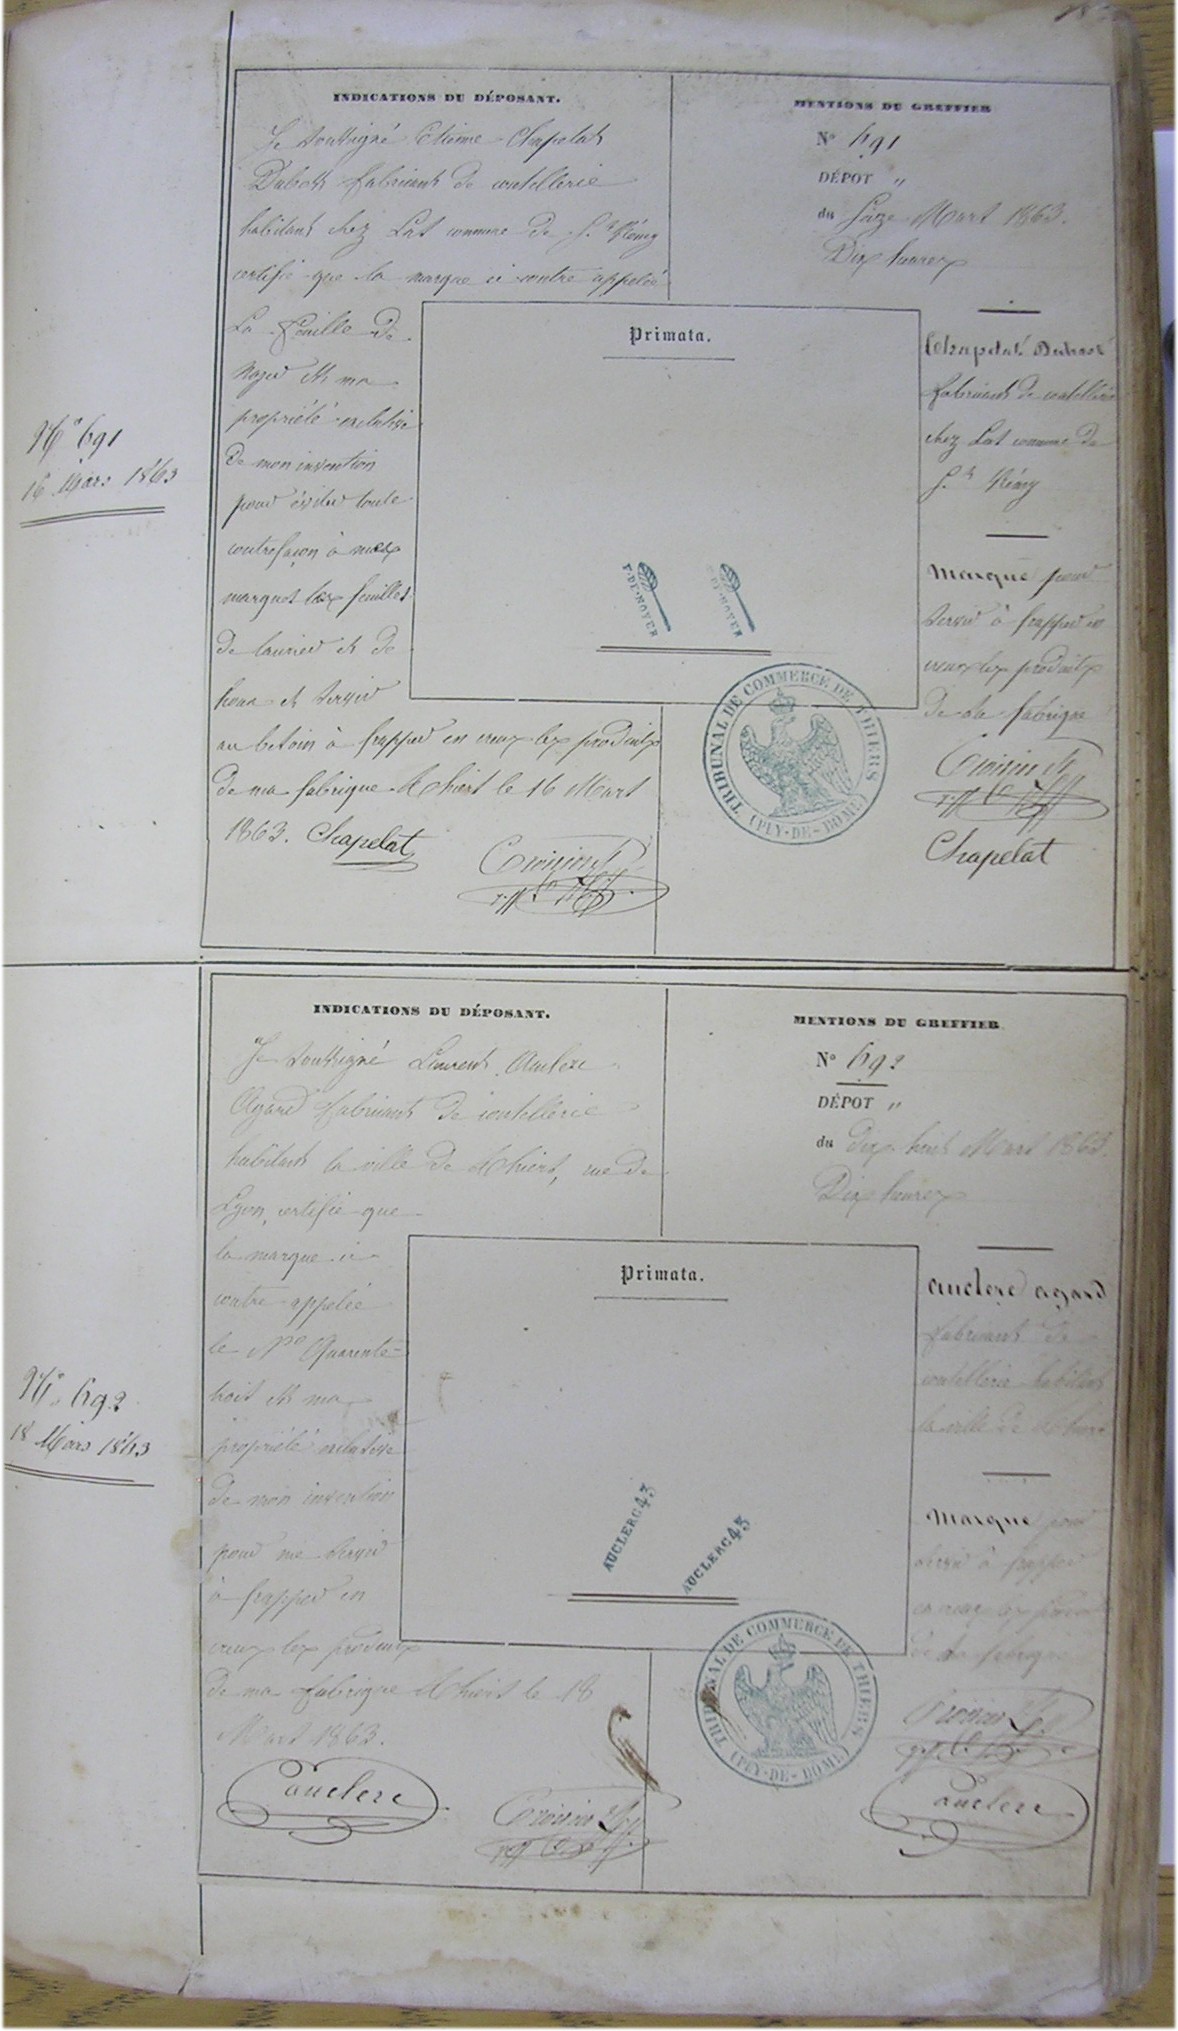 INDICATIONS DU DÉPOSANT.
Je soussigné Etienne Chapelat
Dubost fabricant de coutellerie
habitant chez Lat commune de St Rémy
certifie que la marque ci contre appelée
La feuille de
Noyer est ma
propriété exclusive
de mon invention
pour éviter toute
contrefaçon à mes
marques les feuilles
de laurier et de
houx et servir
au besoin à frapper en creux les produits
de ma fabrique Thiers le 16 Mars
1863. Chapelat
MENTIONS DU GREFFIER
No 691
DÉPOT "
du Seize Mars 1863.
Dix heures
Primata.
F. DE NOYER
F. DE NOYER
TRIBUNAL DE COMMERCE DE THIERS
(PUY-DE-DOME)
Chapelat Dubost
fabricant de coutellerie
chez Lat commune de
St Rémy
Marque pour
servir à frapper en
creux les produits
de sa fabrique
Chapelat
No 691
16 Mars 1863
INDICATIONS DU DÉPOSANT.
Je soussigné Laurent Auclerc
Agard fabricant de coutellerie
habitant la ville de Thiers, rue de
Lyon, certifie que
la marque ci
contre appelée
le No Quarante=
trois est ma
propriété exclusive
de mon invention
pour me servir
à frapper en
creux les produits
de ma fabrique Thiers le 18
Mars 1863.
auclerc
MENTIONS DU GREFFIER
No 692
DÉPOT "
du dix huit Mars 1863.
Dix heures
Primata.
AUCLERC 43
AUCLERC 43
TRIBUNAL DE COMMERCE DE THIERS
(PUY-DE-DOME)
auclerc agard
fabricant de
coutellerie habitant
la ville de Thiers
Marque pour
servir à frapper
en creux les produits
de sa fabrique
auclerc
No 692
18 Mars 1863